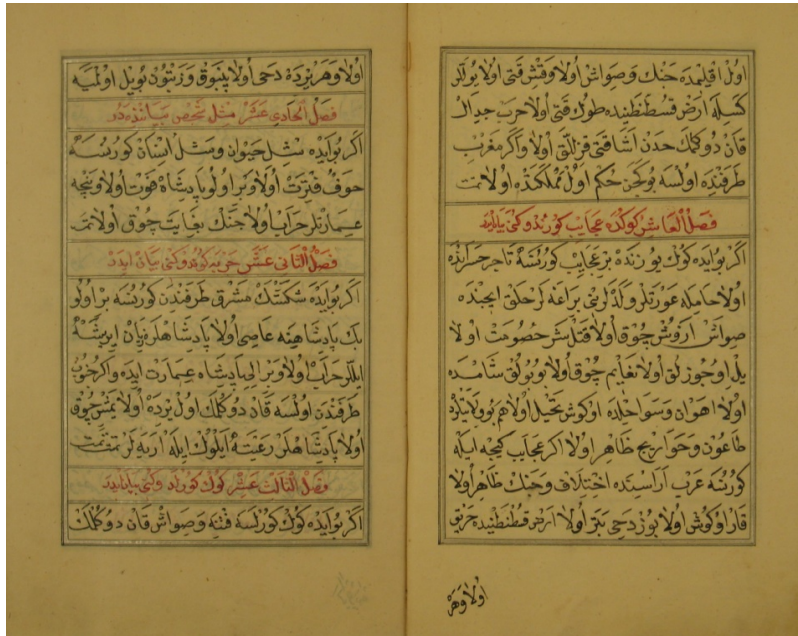 اول اقلیمده جنك و صواش اولا و قتش قتی اولا یوللر
کسله ارض قسطنطنیده طولك قتی اولا حرب جدال
قان دوکلمك حدن اشا قتی قزللق اولا و اکر مغرب
طرفنده اولسه بو کجن حکم اول مملکتده اولا تمت
فصل العاشر کوکده عجایب کورندوکنی بیان ایدر
اکر بو ایده کوك یوزنده بر عجایب کورنسه تاجر جزایرده
اولا حامله عورتلر ولدلرینی براغه لر خلق ایچنده
صواش اروش چوق اولا قتل بشر خصومت اولا
ییل اوجوزلق اولا نغایم چوق اولا بوبوللق شامده
اولا اهوان و سواحلده اوکوش نخیل اولا هم بو ولایتلرده
طاعون و خوارج ظاهر اولا اکر عجایب کیجه ایله
کورنسه عرب اراسینده اختلاف و جنك ظاهر اولا
قار اوکوش اولا بوز دحی بتر اولا ارض قسطنطنیده حریق
اولا و هر
اولا و هر یرده دحی اولا پنبوق و زیتون بویل اولمیه
فصل الحادی عشر مثل شخص بیاننده در
اکر بو ایده مثل حیوان و مثل انسان کورنسه
خوف فترت اولا و بر اولو پادشاه فوت اولا و نیچه
عمارتلر خراب اولا جنك بغایت چوق اولا تمت
فصل الثانی عشر حربه کورندوکنی بیان ایدر
اکر بو ایده شکتك مشرق طرفندن کورنسه بر اولو
بك پادشاهینه عاصی اولا پادشاهلره زیان ایریشه
ایللر خراب اولا و بر ایلی پادشاه عمارت ایده و اکر جنوب
طرفندن اولسه قان دوکلمك اول یرده اولا یمش چوق
اولا پادشاهلر رعیته ایلوك ایله اریه لر تمت
فصل الثالث عشر کوك کورلدوکنی بیان ایدر
اکر بو ایده کوك کورلسه فتنه و صواش قان دوکلمك